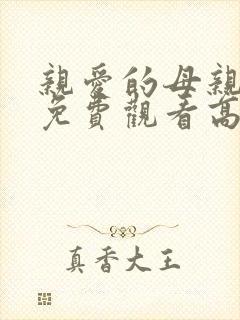 親愛的母親
免費觀看高
真香大王